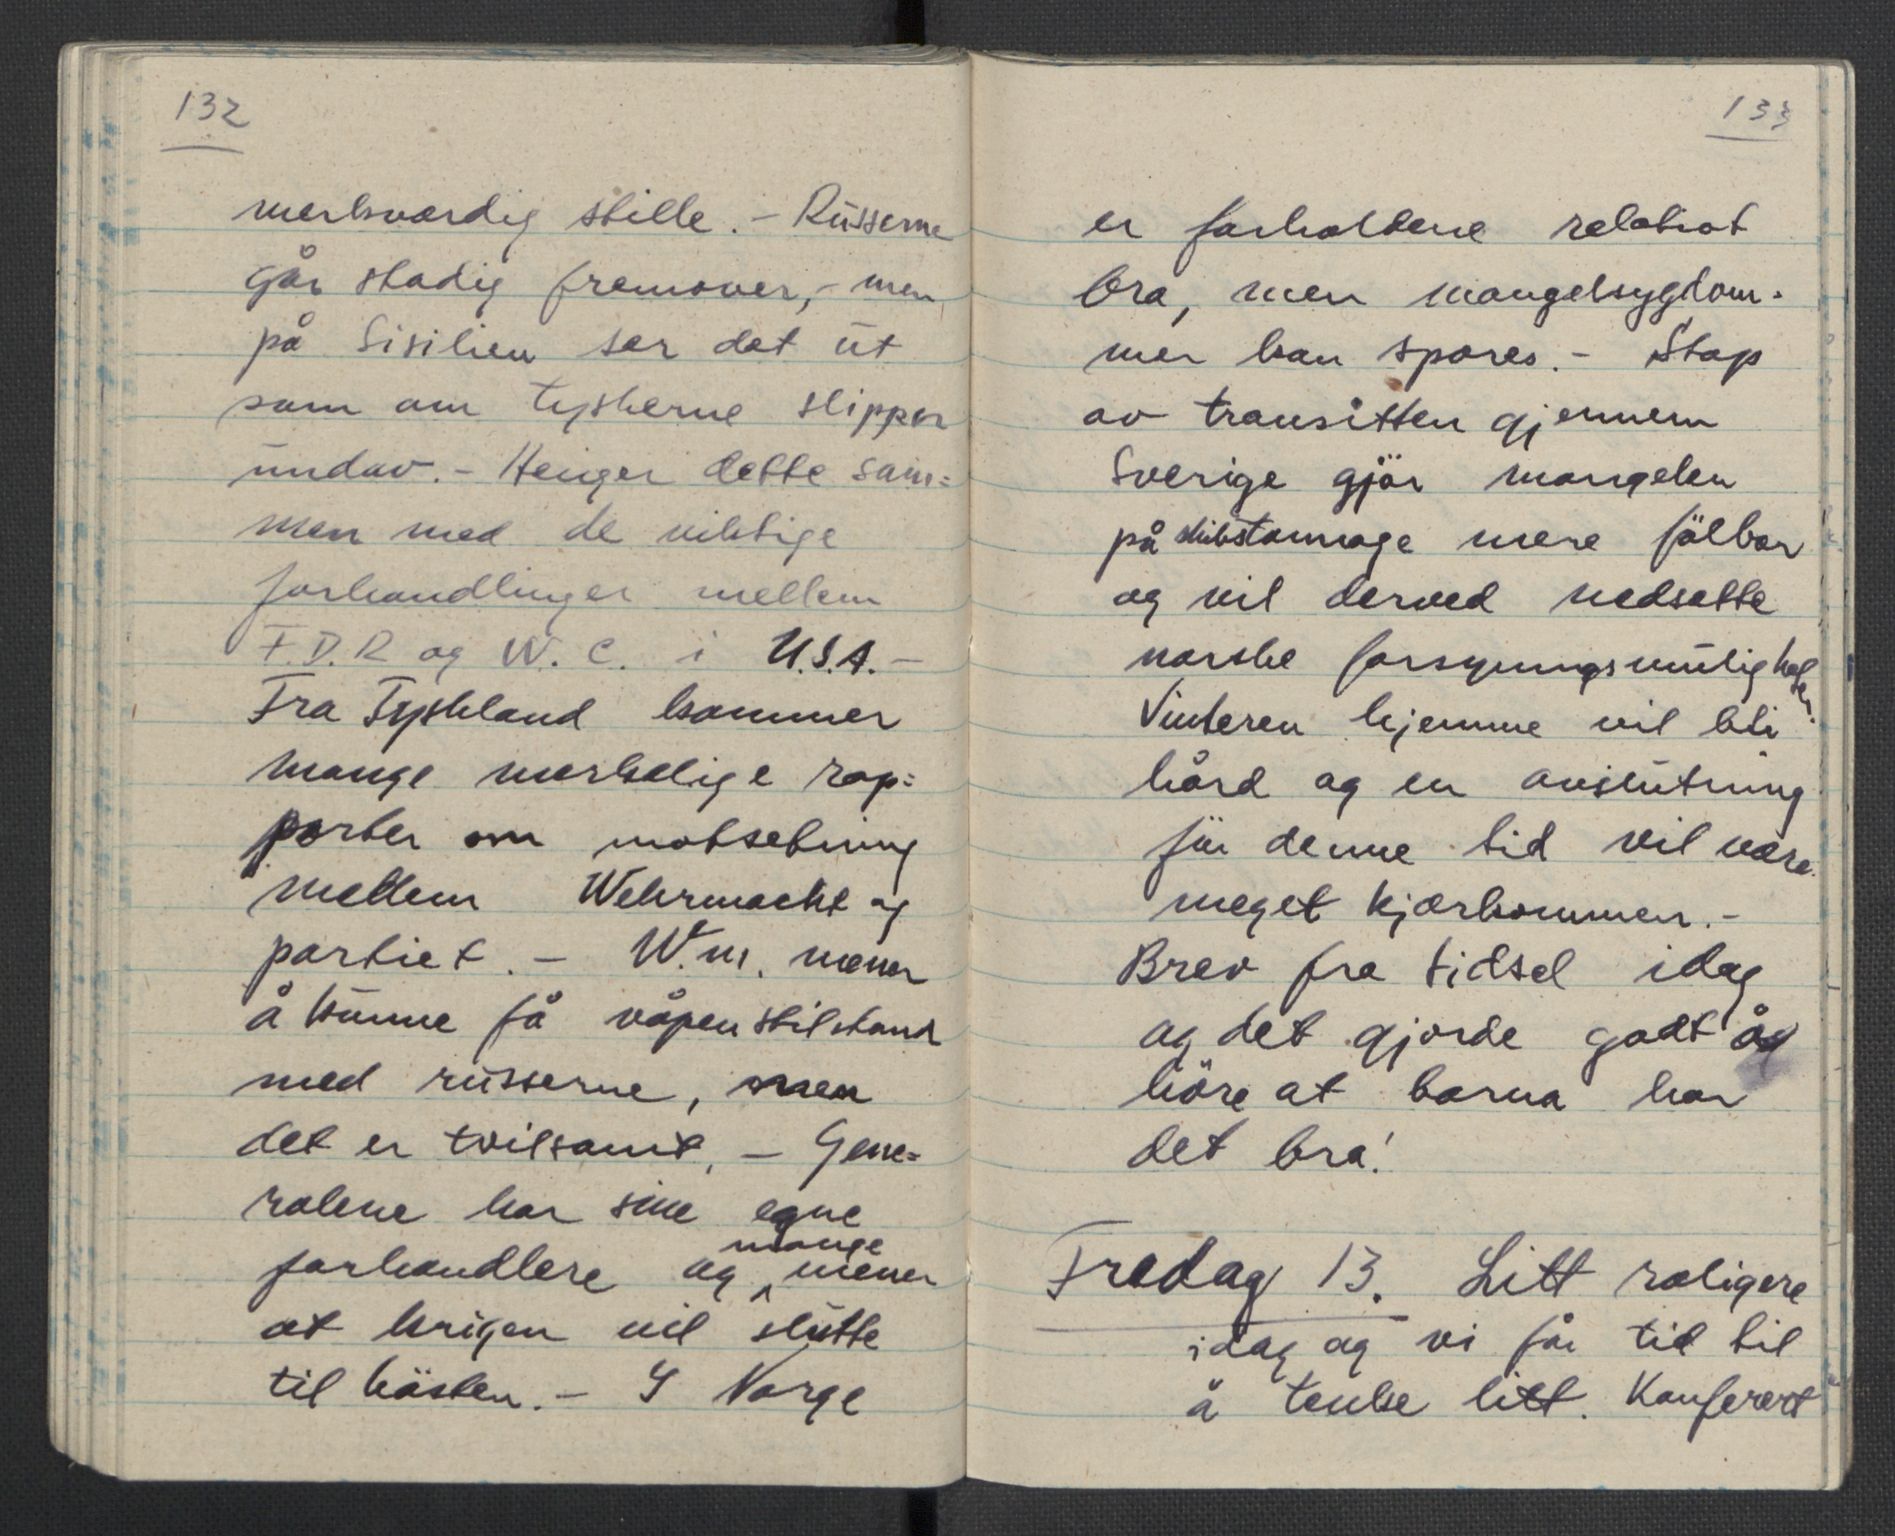 132
merksværdig stille. – Rüsserne
går stadig fremover, – men
på Sisilien ser det üt
som om tyskerne slipper
ündav. – Henger dette sam=
men med de viktige
forhandlinger mellem
F.D.R og W.C. i U.S.A. –
Fra Tyskland kommer
mange merkelige rap=
porter om motsetning
mellem Wehrmacht og
partiet. – W.m. mener
å künne få våpenstilstand
med rüsserne, men
det er tvilsomt, – Gene=
ralene har sine egne
forhandlere og mange mener
at krigen vil slütte
til hösten. – I Norge
133
er forholdene relativt
bra, men mangelsygdom-
mer kan spores. – Stop
av transitten gjennem
Sverige gjör mangelen
på skibstonnage mere fölbar
og vil derved nedsette
norske forsyningsmülighet
Vinteren hjemme vil bli
hård og en avslütning
för denne tid vil være
meget kjærkommen. –
Brev fra Sidsel idag
og det gjorde godt å
höre at barna har
det bra!
Fredag 13. Litt roligere
idag og vi får tid til
å tenke litt. Konferert